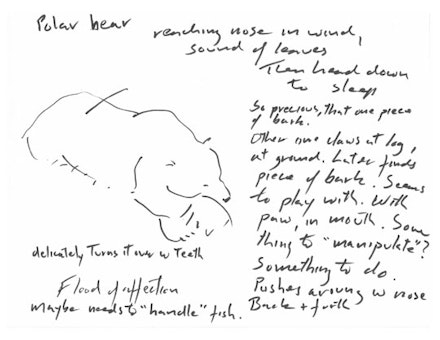 Polar bear
reaching nose in wind,
sound of leaves
Then head down
to sleep
So precious, that one piece
of bark.
Other one claws at log,
at ground. Later finds
piece of bark. Seems
to play with. With
paw, in mouth. Some
thing to "manipulate"?
Something to do.
Pushes around w nose
Back + forth
delicately turns it over w teeth
Flood of affection
maybe needs to "handle" fish.